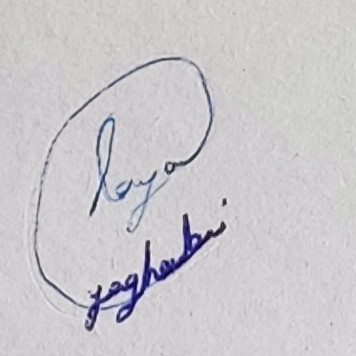 laya
yaghoubi